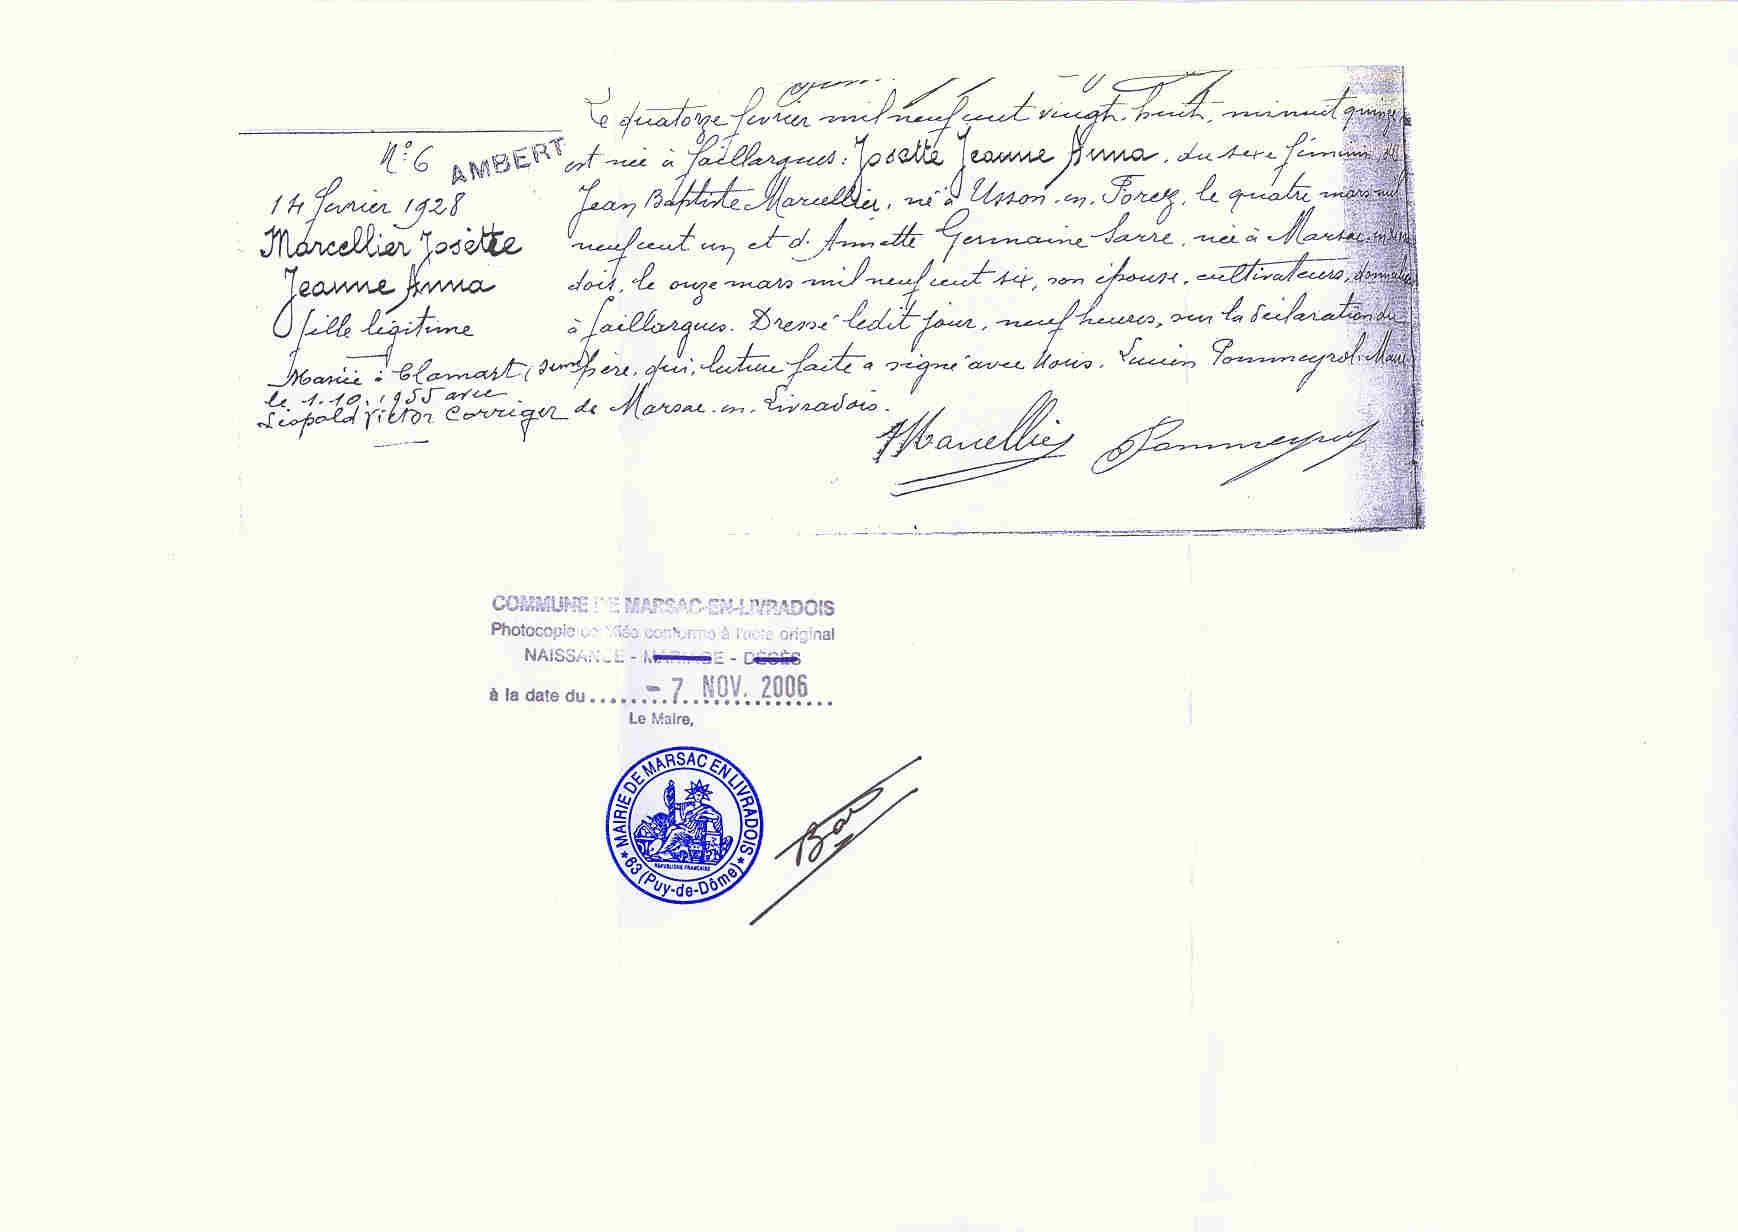 N° 6 AMBERT
14 février 1928
Marcellier Josette
Jeanne Anna
fille légitime
Mariée à Clamart (Seine)
le 1.10.1955 avec
Léopold Victor Corriger
Le quatorze février mil neuf cent vingt-huit, minuit quinze,
est née à Faillargues: Josette Jeanne Anna, du sexe féminin, de
Jean Baptiste Marcellier, né à Usson-en-Forez, le quatre mars mil
neuf cent un, et d'Annette Germaine Sarre, née à Marsac-en-Livra
dois, le onze mars mil neuf cent six, son épouse, cultivateurs, domiciliés
à Faillargues. Dressé ledit jour, neuf heures, sur la déclaration du
père, qui, lecture faite a signé avec Nous, Lucien Pommeyrol, Maire
de Marsac-en-Livradois.
Marcellier Pommeyrol
COMMUNE DE MARSAC-EN-LIVRADOIS
Photocopie certifiée conforme à l'acte original
NAISSANCE - MARIAGE - DÉCÈS
à la date du - 7 NOV. 2006
Le Maire,
MAIRIE DE MARSAC EN LIVRADOIS
RÉPUBLIQUE FRANÇAISE
* 63 (Puy-de-Dôme) *